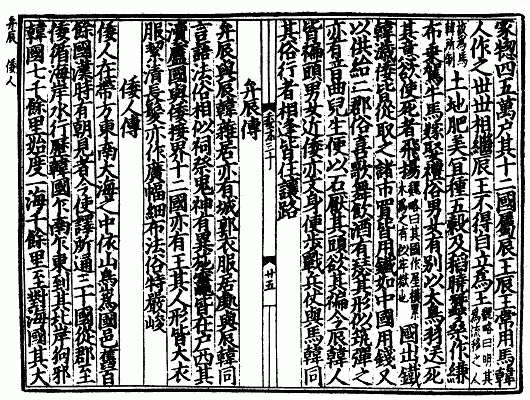 家摠四五萬戶其十二國屬辰王辰王常用馬韓
人作之世世相繼辰王不得自立爲王魏略曰明其爲流移之人
故爲馬韓所制土地肥美宜種五穀及稻曉蠶桑作縑
布乗駕牛馬嫁娶禮俗男女有別以大鳥羽送死
其意欲使死者飛揚魏略曰其國作屋橫累木爲之有似牢獄也國出鐵
韓濊倭皆從取之諸市買皆用鐵如中國用錢又
以供給二郡俗喜歌舞飲酒有瑟其形似筑彈之
亦有音曲兒生便以石厭其頭欲其褊今辰韓人
皆褊頭男女近倭亦文身便步戰其仗與馬韓
其俗行者相逢皆住讓路
廿五
弁辰傳
弁辰與辰韓雜居亦有城郭衣服居處與辰韓同
言語法俗相似祠祭鬼神有異施竈皆在戶西其
瀆盧國與倭接界十二國亦有王其人形皆大衣
服絜清長髮亦作廣幅細布法俗特嚴峻
倭人傳
倭人在帶方東南大海之中依山島爲國邑舊百
餘國漢時有朝見者今使譯所通三十國從郡至
倭循海岸水行歷韓國乍南乍東到其北岸狗邪
韓國七千餘里始度一海千餘里至對海國其大
弁辰 倭人